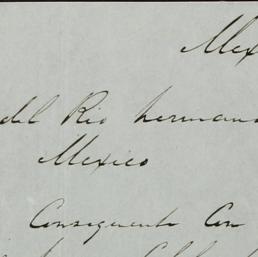 Mex
del Rio herman
Mexico
Consequente Con